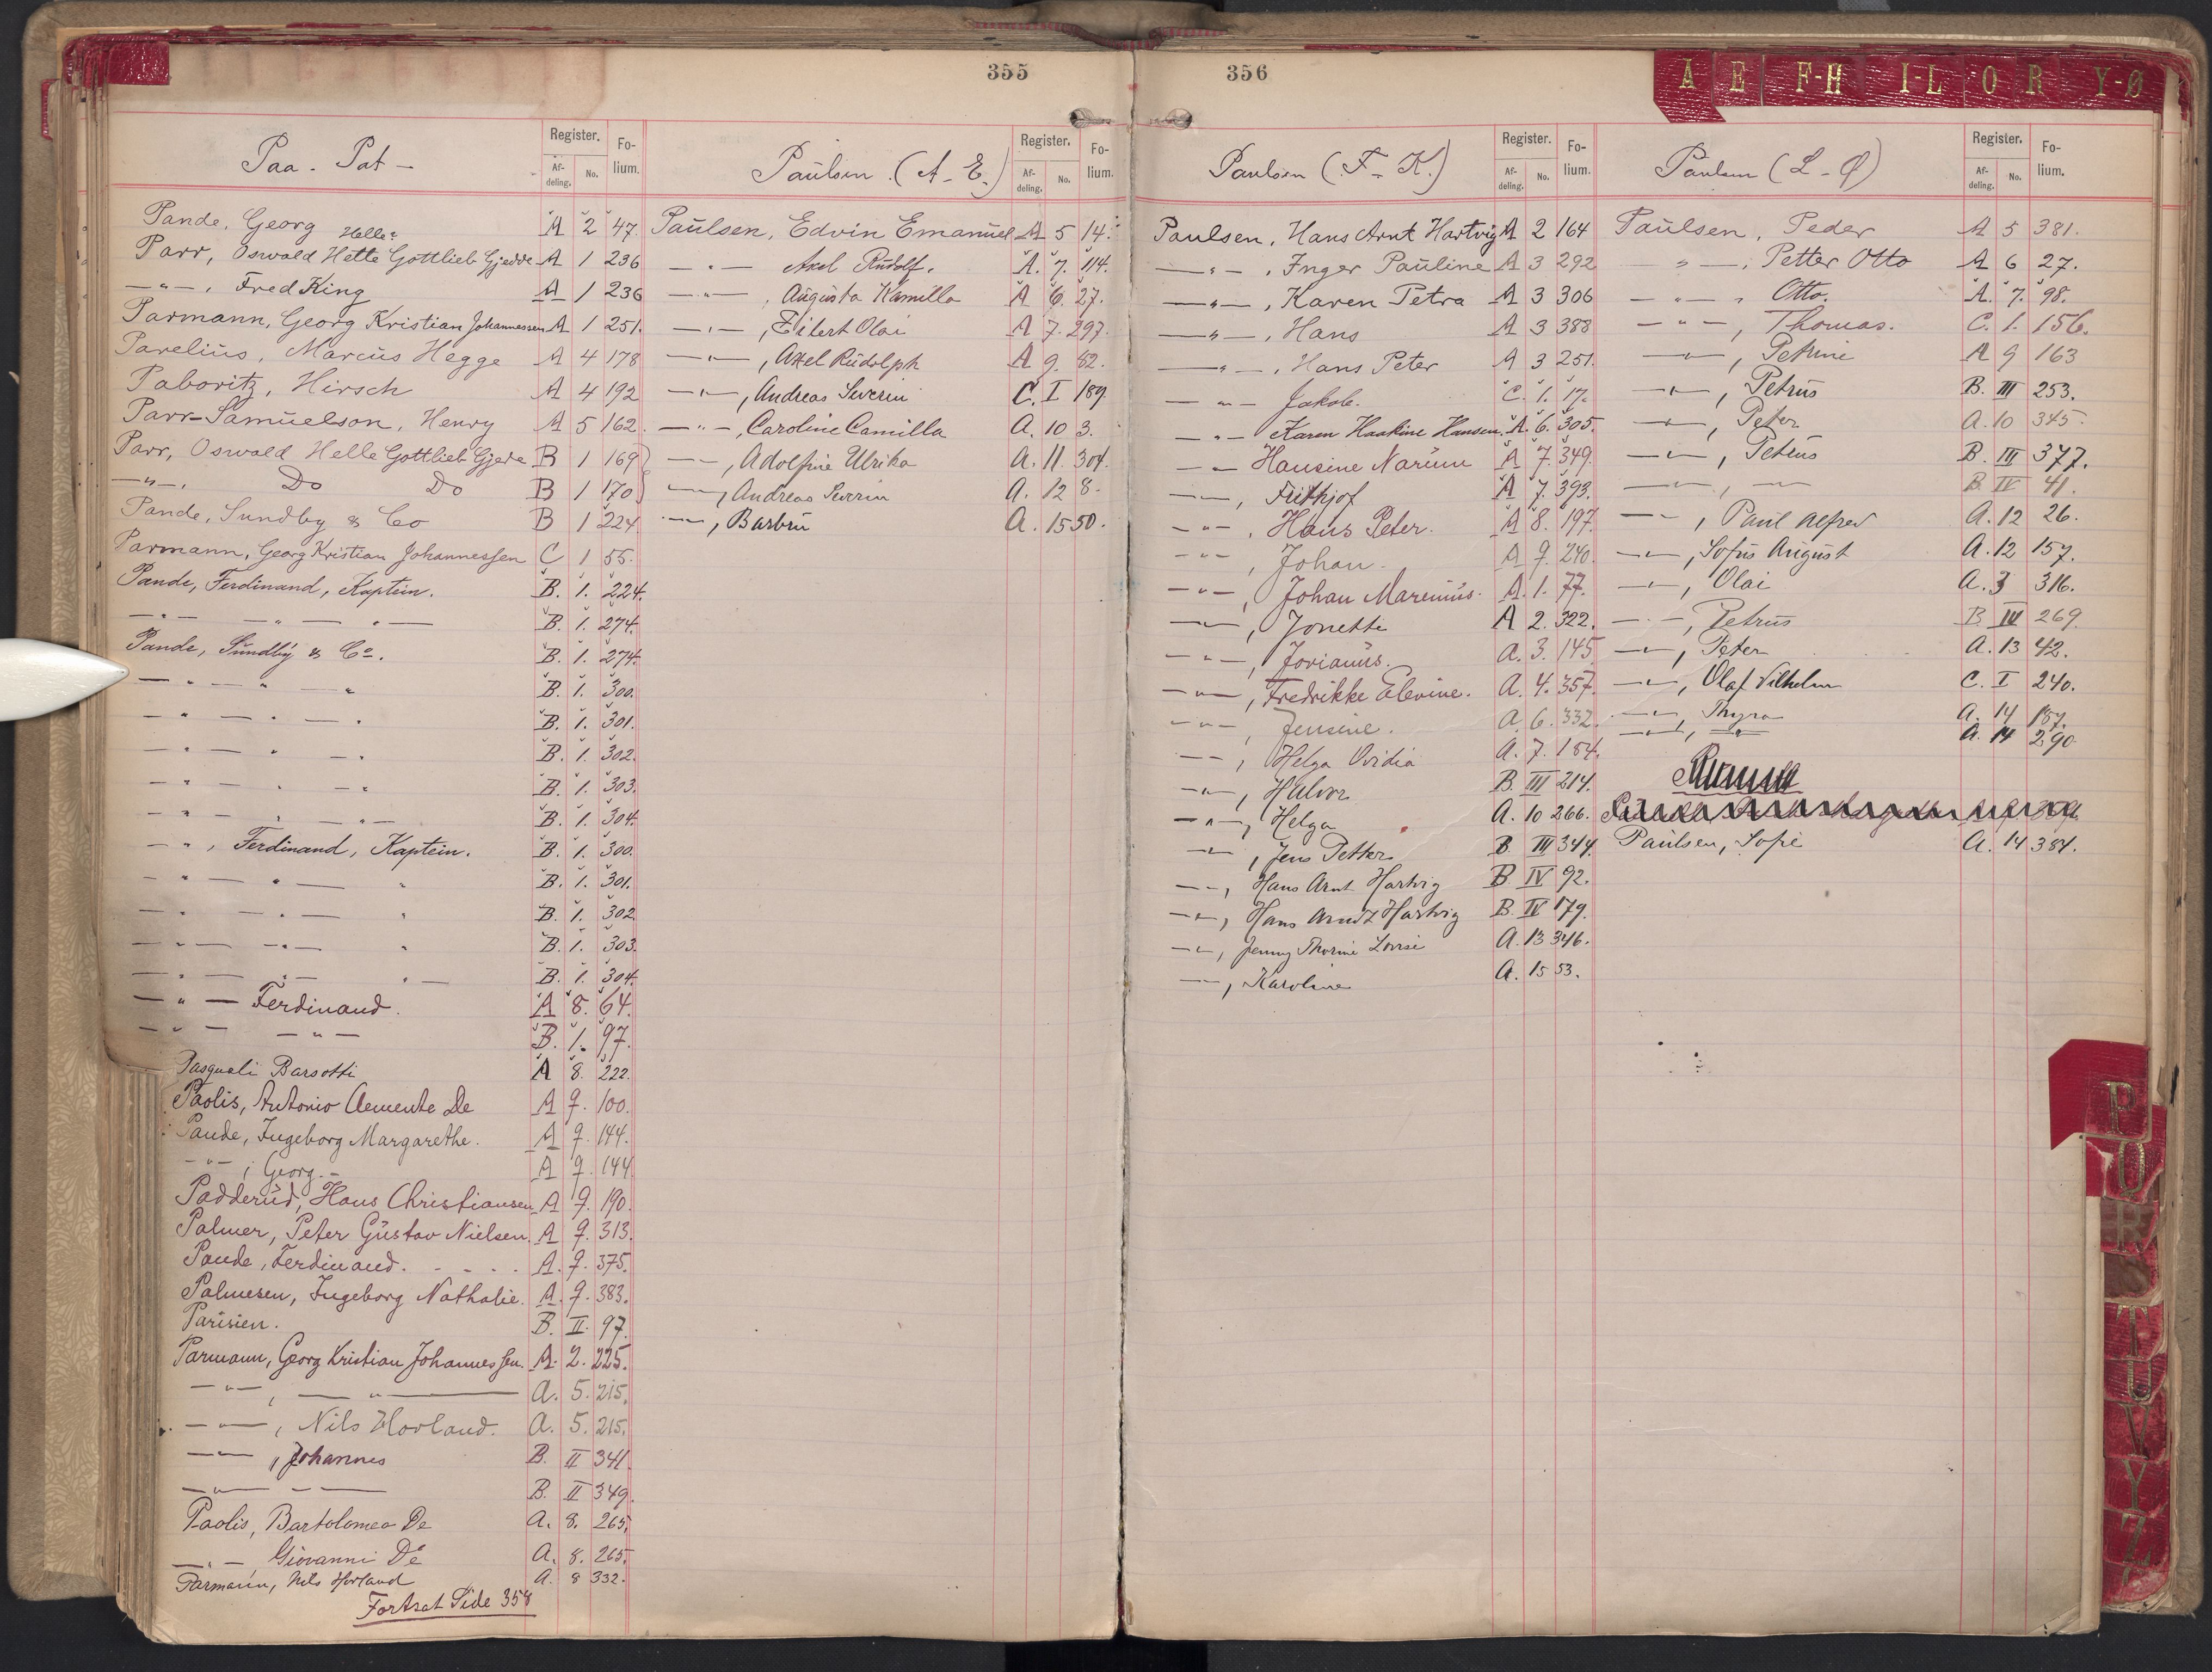 355
Paa - Pat -
Register.
Fo-
lium.
Af-
deling.
No.
Pande, Georg A 2 47.
Helle?
Parr, Oswald Helle Gottlieb Gjedde A 1 236
—"—, Fred King A 1 236
Parmann, Georg Kristian Johannessen A 1 251.
Parelius, Marcus Hegge A 4 178
Paboritz, Hirsch A 4 192
Parr-Samuelson, Henry A 5 162.
Parr, Oswald Helle Gottlieb Gjede B 1 169
—"—, Do Do B 1 170
Pande, Sundby & Co B 1 224
Parmann, Georg Kristian Johannessen C 1 55.
Pande, Ferdinand, Kaptein. B. 1. 224.
—"— —"— —"— B. 1. 274.
Pande, Sundby & Co. B. 1. 274.
—"— " —" B. 1. 300.
—"— " —" B. 1. 301.
—"— " —" B. 1. 302.
—"— " —" B. 1. 303.
—"— " —"— B. 1. 304.
—", Ferdinand, Kaptein. B. 1. 300.
—"— " — " B. 1. 301.
—"— " — " B. 1. 302
—"— —"— " B. 1. 303.
—"— —"— "— B. 1. 304.
—"— Ferdinand. A 8. 64.
—"— —"— B. 1. 97.
Pasquali Barsotti A 8. 222.
Paolis, Antonio Clemente De A 9. 100.
Pande, Ingeborg Margarethe. A 9. 144.
—"—, Georg. A 9. 144
Padderud, Hans Christiansen A 9. 190.
Palmer, Peter Gustav Nielsen. A 9. 313.
Pande, Ferdinand. - - - - A. 9. 375.
Palmesen, Ingeborg Nathalie. A. 9. 383.
Parisien. B. II. 97.
Parmann, Georg Kristian Johannessen. A. 2. 225.
—"—, —"— A. 5. 215.
—"—, Nils Horland. A. 5. 215.
—"—, Johannes B. II 341
—"— —"— B. II 349.
Paolis, Bartolomeo De A. 8. 265.
—"— Giovanni De A. 8. 265.
Parmann, Nils Horland A. 8 332.
Fortsat Side 358
Paulsen. (A - E.)
Register.
Fo-
lium.
Af-
deling.
No.
Paulsen, Edvin Emanuel A 5 14.
—"— Axel Rudolf. A. 7. 114.
—"—, Augusta Kamilla A 6. 27.
—"—, Eilert Olai A 7. 297.
—"—, Axel Rudolph A 9. 82.
—"—, Andreas Severin C. I 189
—"—, Caroline Camilla A. 10 3.
—"—, Adolfine Ulrika A. 11. 304.
—"—, Andreas Severin A. 12 8.
—"—, Barbru A. 15 50.
356
A E F-H I-L O R Y-Ø
Paulsen (F - K.)
Register.
Fo-
lium.
Af-
deling.
No.
Paulsen, Hans Arnt Hartvig A 2 164
—"—, Inger Pauline A 3 292
—"—, Karen Petra A 3 306
—"—, Hans A 3 388
—"—, Hans Peter A 3 251.
—"— Jakob. C. 1. 17.
—"— Karen Haakine Hansen. A. 6. 305.
—"— Hansine Narum A 7. 349.
—"—, Frithjof A 7. 393.
—"—, Hans Peter. A 8. 197.
—"—, Johan. A 9. 240.
—"—, Johan Marenius. A. 1. 77.
—"—, Jonette A 2. 322.
—"—, Jorianus. A. 3. 145
—"—, Fredrikke Elevine. A. 4. 357.
—"—, Jensine. A. 6. 332.
—"—, Helga Ovidia A. 7. 184.
—"—, Halvor B. III 214.
—"—, Helga A. 10 266.
—"—, Jens Petter B. III 344.
—"—, Hans Arnt Hartvig B IV 92.
—"—, Hans Arndt Hartvig B. IV 179.
—"—, Jenny Thorine Lovise A. 13 346.
—"—, Karoline A. 15 53.
Paulsen (L - Ø)
Register.
Fo-
lium.
Af-
deling.
No.
Paulsen, Peder A 5 381.
—"—, Petter Otto A 6 27.
—"—, Otto. A. 7. 98.
—"—, Thomas. C. 1. 156.
—"—, Petrine A 9 163
—"—, Petrus B. III 253.
—"—, Peter A. 10 345.
—"—, Petrus B. III 377.
—"—, —"— B IV 41.
—"—, Paul Alfred A. 12 26.
—"—, Sofus August A. 12 157.
—"—, Olai A. 3 316.
—"—, Petrus B IV 269.
—"—, Peter A. 13 42.
—"—, Olaf Vilhelm C. I 240.
—"—, Thyra A. 14 157.
—"—, —"— A. 14 290.
Paulsen, Sofie A. 14 384.
P
O
R
T
U
V
Y
Z